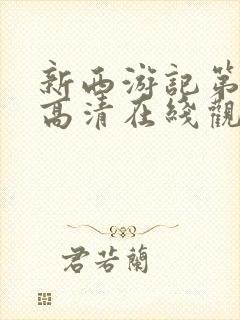 新西游記第
高清在綫觀
君若蘭